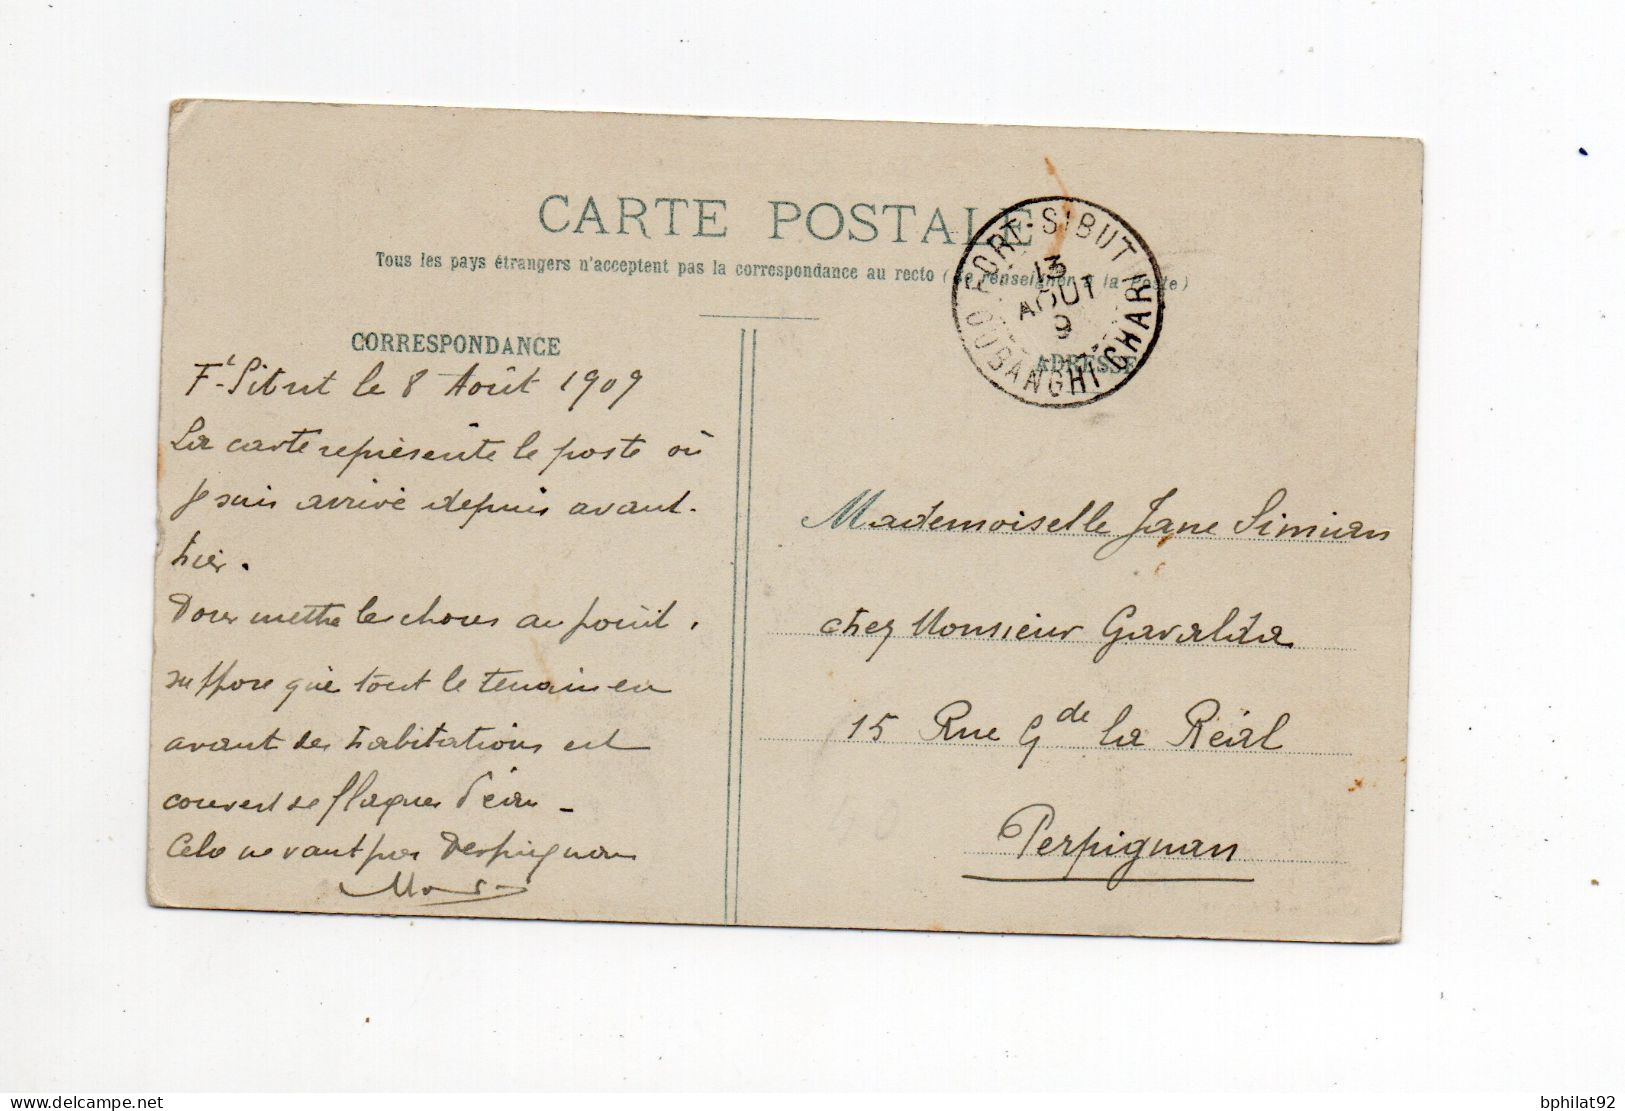 CARTE POSTALE
Tous les pays étrangers n'acceptent pas la correspondance au recto (Se renseigner à la Poste)
FORT-SIBUT
13
AOUT
9
OUBANGHI-CHARI
CORRESPONDANCE
Ft-Sibut le 8 Août 1909
La carte représente le poste où
je suis arrivé depuis avant-
hier.
Pour mettre les choses au point,
suppose que tout le terrain en
avant des habitations est
couvert de flaques d'eau -
Cela ne vaut pas Perpignan
ADRESSE
Mademoiselle Jane Simian
chez Monsieur Gavalda
15 Rue Gde la Réal
Perpignan
delcampe.net
bphilat92